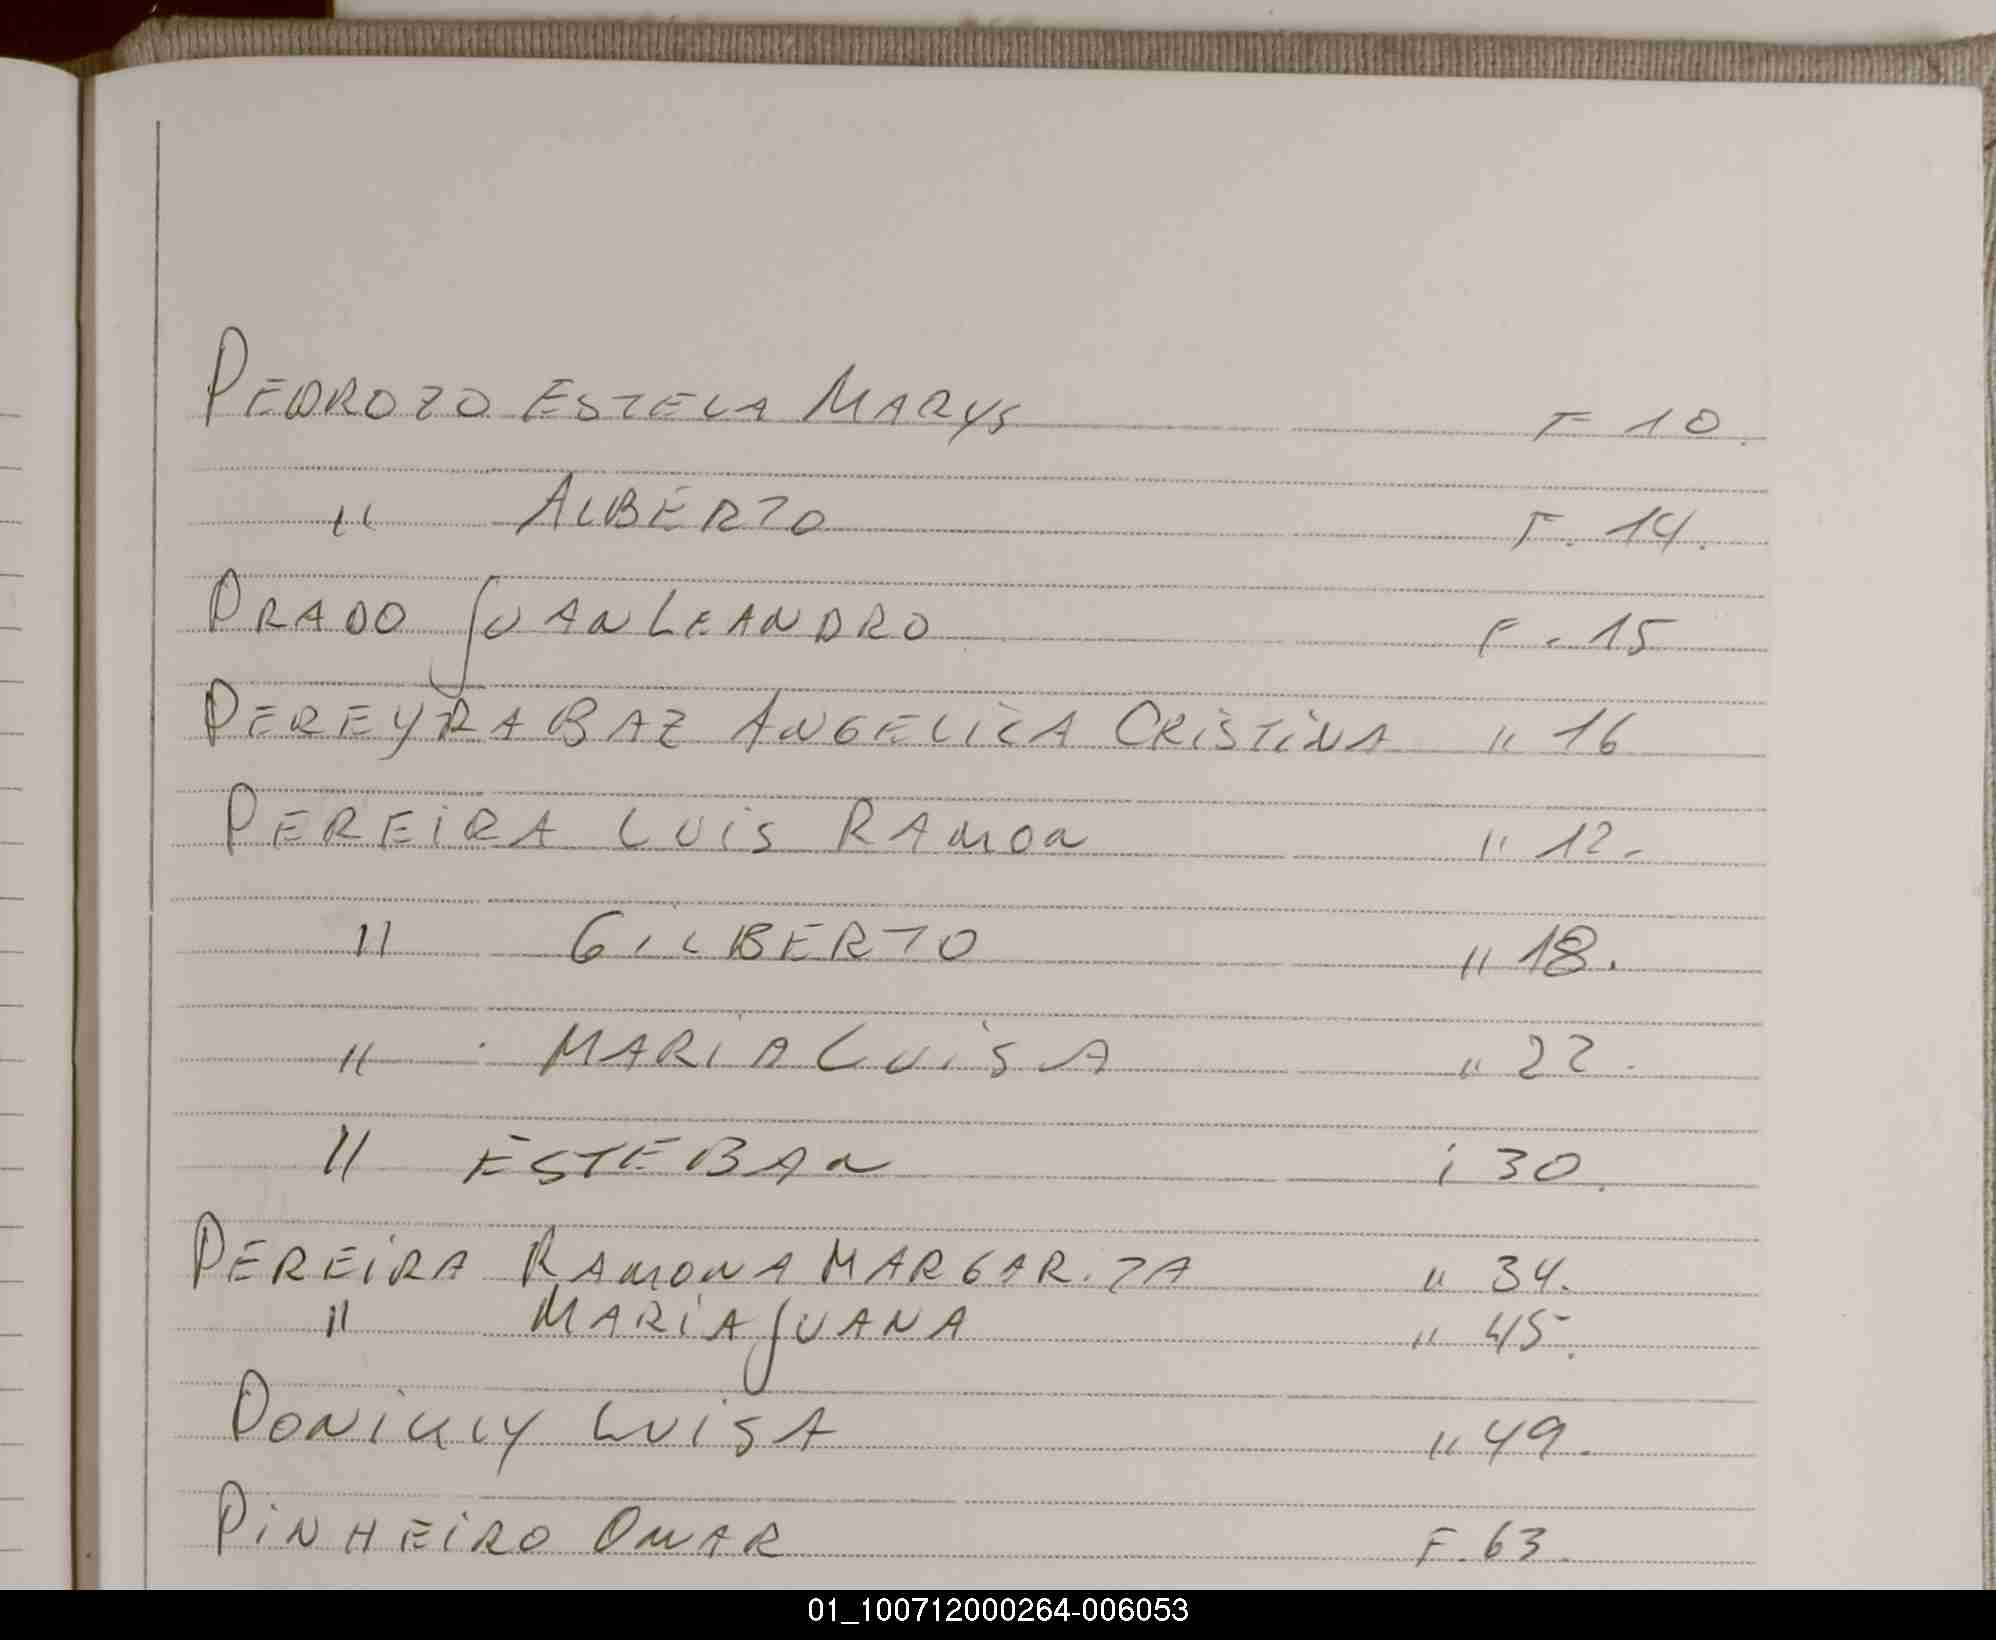 PEDROZO ESTELA MARYS F 10.
" ALBERTO F. 14.
PRADO JUAN LEANDRO F. 15
PEREYRA BAZ ANGELICA CRISTINA " 16
PEREIRA LUIS RAMON " 12.
" GILBERTO " 18.
" MARIA LUISA " 22.
" ESTEBAN " 30.
PEREIRA RAMONA MARGARITA " 34.
" MARIA JUANA " 45.
LUISA " 49.
PINHEIRO OMAR F. 63.
01_100712000264-006053